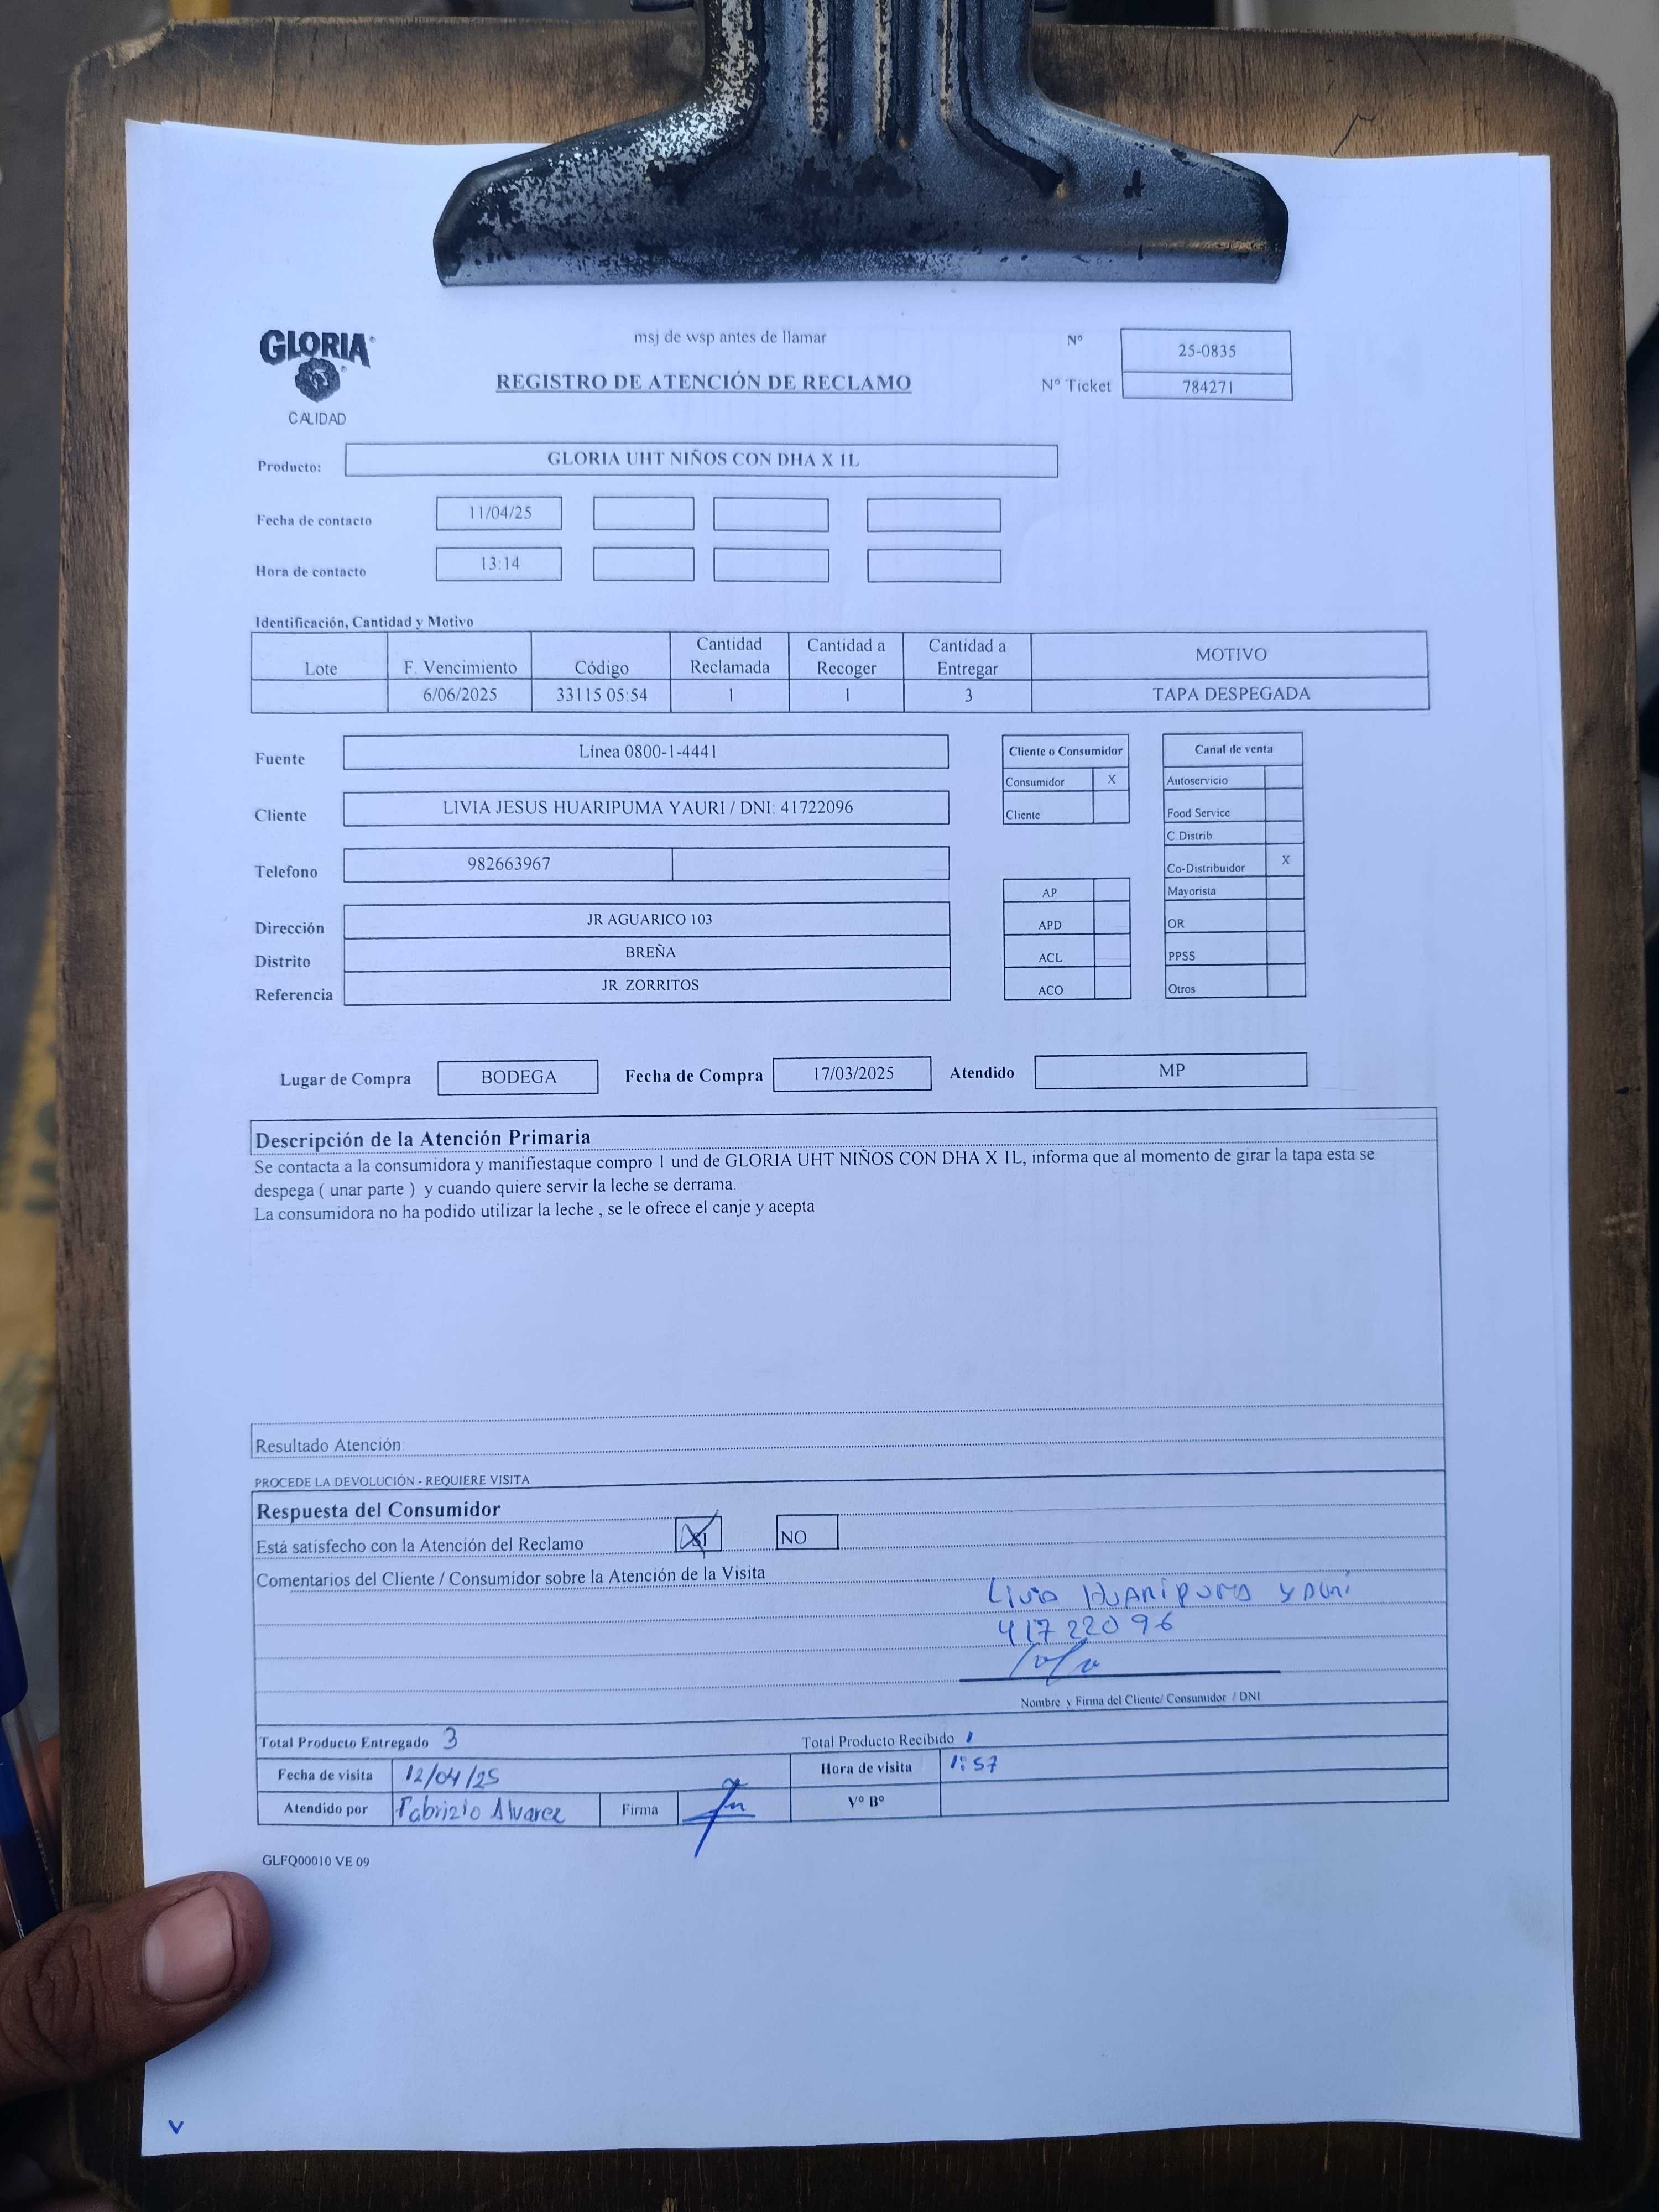 msj de wsp antes de llamar
GLORIA
CALIDAD
REGISTRO DE ATENCIÓN DE RECLAMO
Nº 25-0835
Nº Ticket 784271
Producto: GLORIA UHT NIÑOS CON DHA X 1L
Fecha de contacto 11/04/25
Hora de contacto 13:14
Identificación, Cantidad y Motivo
Lote F. Vencimiento Código Cantidad Reclamada Cantidad a Recoger Cantidad a Entregar MOTIVO
6/06/2025 33115 05:54 1 1 3 TAPA DESPEGADA
Fuente Línea 0800-1-4441
Cliente LIVIA JESUS HUARIPUMA YAURI / DNI: 41722096
Telefono 982663967
Dirección JR AGUARICO 103
Distrito BREÑA
Referencia JR. ZORRITOS
Cliente o Consumidor
Consumidor X
Cliente
AP
APD
ACL
ACO
Canal de venta
Autoservicio
Food Service
C Distrib.
Co-Distribuidor X
Mayorista
OR
PPSS
Otros
Lugar de Compra BODEGA Fecha de Compra 17/03/2025 Atendido MP
Descripción de la Atención Primaria
Se contacta a la consumidora y manifiestaque compro 1 und de GLORIA UHT NIÑOS CON DHA X 1L, informa que al momento de girar la tapa esta se
despega ( unar parte ) y cuando quiere servir la leche se derrama.
La consumidora no ha podido utilizar la leche , se le ofrece el canje y acepta
Resultado Atención:
PROCEDE LA DEVOLUCIÓN - REQUIERE VISITA
Respuesta del Consumidor
Está satisfecho con la Atención del Reclamo SI NO
Comentarios del Cliente / Consumidor sobre la Atención de la Visita
Livia Huaripuma Yauri
41722096
Nombre y Firma del Cliente/ Consumidor / DNI
Total Producto Entregado 3 Total Producto Recibido 1
Fecha de visita 12/04/25 Hora de visita 1:57
Atendido por Fabrizio Alvarez Firma Vº Bº
GLFQ00010 VE 09